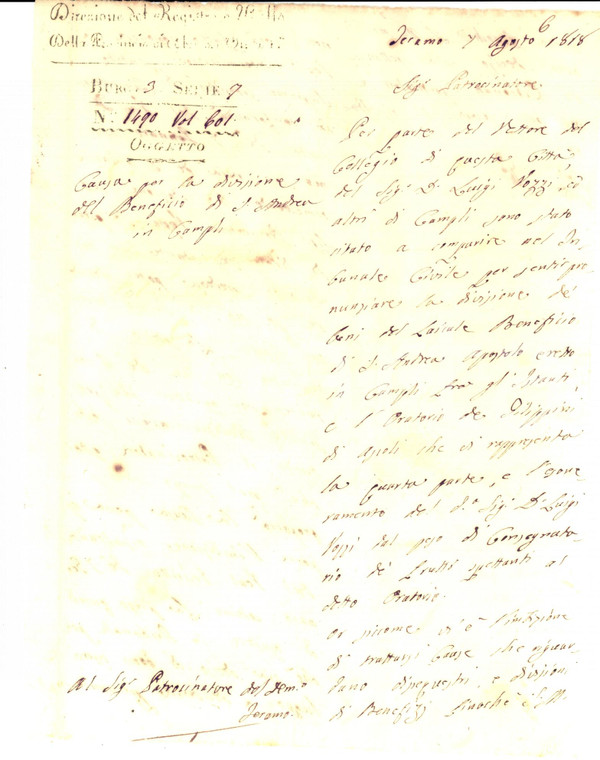 Direzione del Registro e
Della Provincia
Teramo 7 Agosto 1818
Burò 3 Serie 7
N. 1490 Vol 601
Oggetto
Causa per la divisione
del Beneficio di S Andrea
in Campli
Sig.r Patrocinatore
Per parte del Rettore del
Collegio di questa Città,
del Sig.r D. Luigi Vozzi, ed
altri di Campli sono stato
citato a comparire nel Tri
bunale Civile per sentir pro
nunziare la divisione de'
beni del Laicale Beneficio
di S. Andrea Apostolo eretto
in Campli fra gl'Istanti,
e l'Oratorio de' Filippini
di Ascoli che si rappresenta
la quarta parte, e l'eson
ramento del d.o Sig.r D. Luigi
Vozzi dal peso di Consegnata
rio de' frutti spettanti al
detto Oratorio.
Or siccome vi è
di trattarsi Cause che riguar
dano disequestri, e divisioni
di Benefizj
Al Sig.r Patrocinatore del Dem.o
Teramo